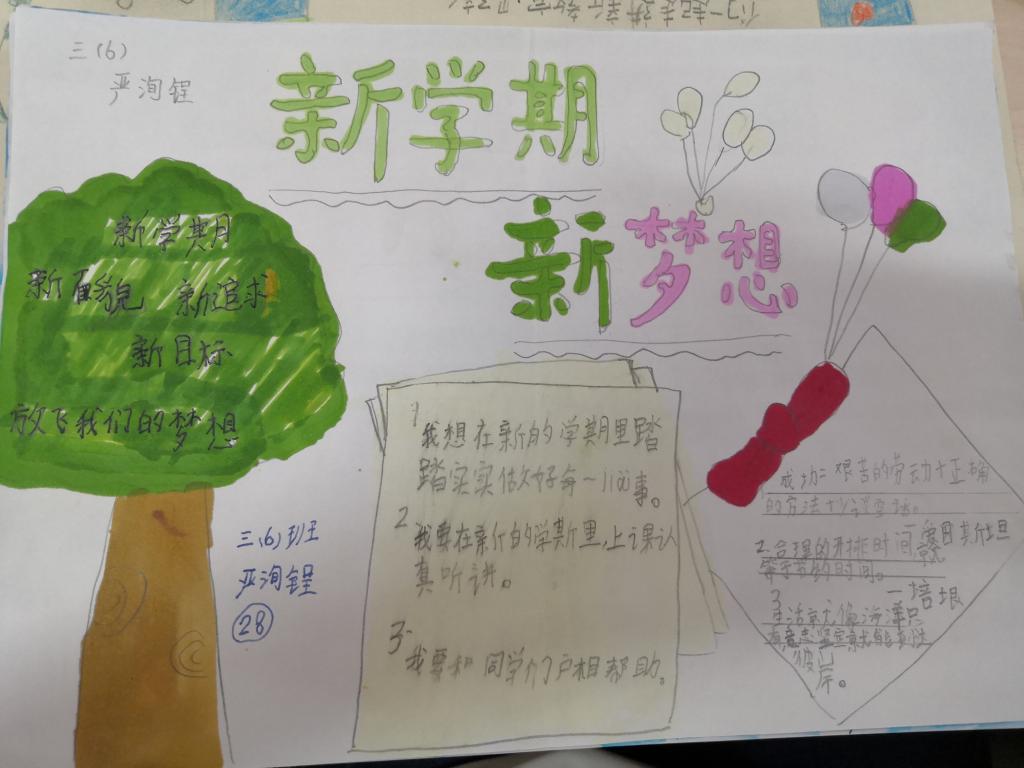 三(6)
严洵锃
新学期
新梦想
新学期
新面貌 新追求
新目标
放飞我们的梦想
三(6)班
严洵锃
28
1
我想在新的学期里踏
踏实实做好每一小事。
2
我要在新的学斯里,上课认
真听讲。
3.
我要和同学们户相帮助。
成功=艰苦的劳动+正确
的方法+少学空话。
2.合理的排时间
等于节的时间。
一培根
生活就像海洋只
有意志坚定
彼岸。